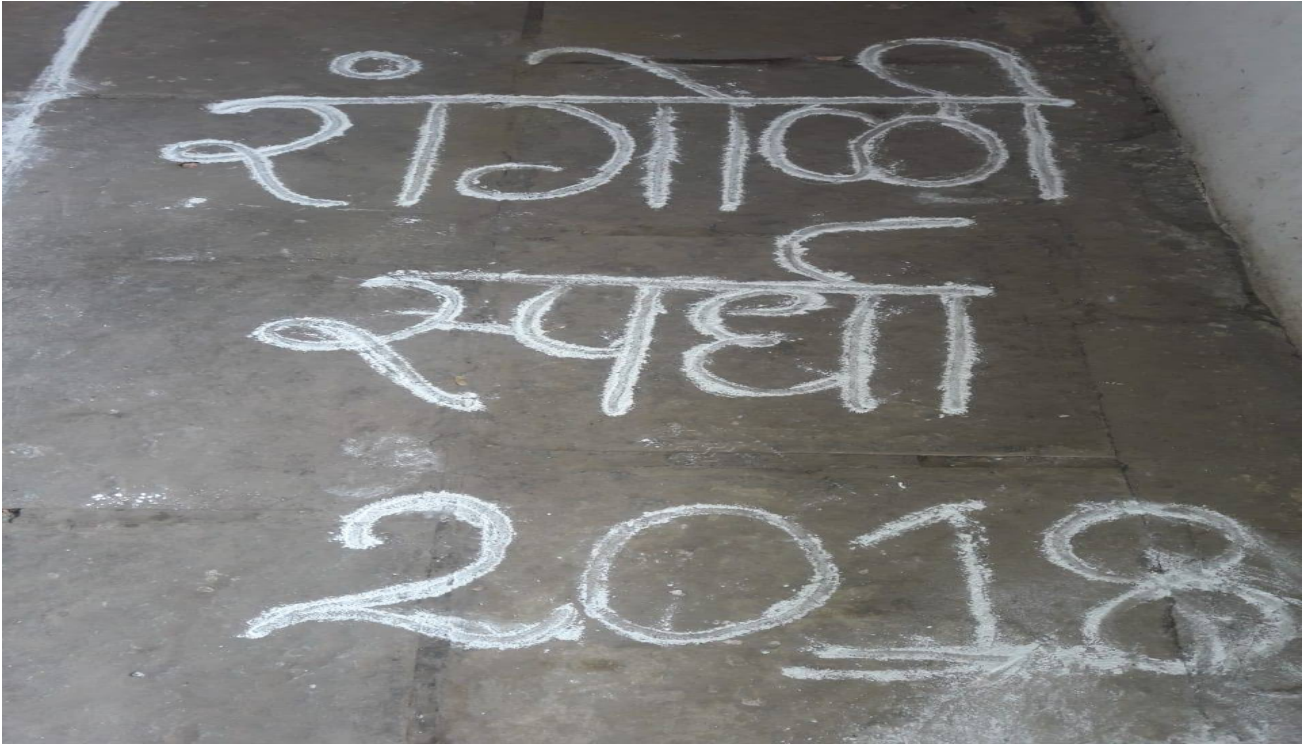 रांगोळी
स्पर्धा
2018